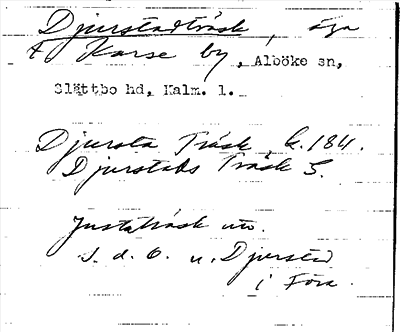 Djurstadträsk, äga
t Karse by, Alböke sn,
Slättbo hd, Kalm. l.
Djursta Träsk, k. 184.
Djurstads Träsk S.
Justaträsk utt.
s. d. o. u. Djursted
i Föra.